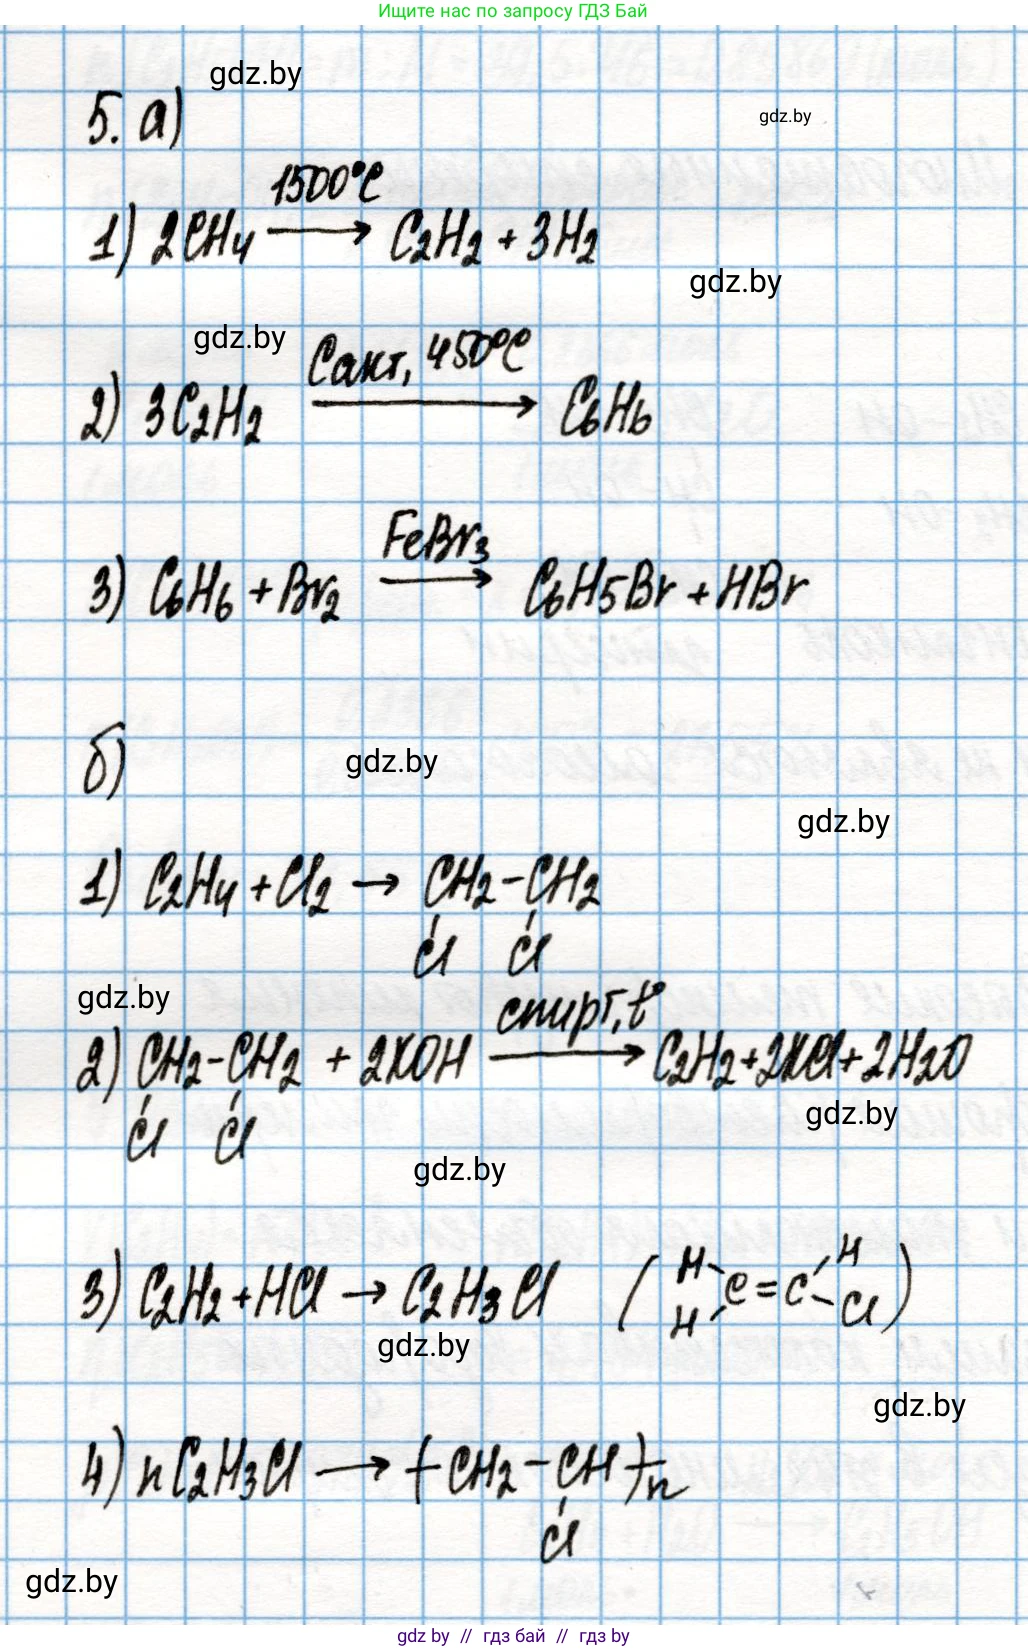 Ищите нас по запросу ГДЗ Бай
gdz.by
5. а)
gdz.by
1) 2CH4 1500°C → C2H2 + 3H2
gdz.by
gdz.by
2) 3C2H2 Cакт, 450°C → C6H6
3) C6H6 + Br2 FeBr3 → C6H5Br + HBr
б)
gdz.by
gdz.by
1) C2H4 + Cl2 → CH2 - CH2
Cl Cl
gdz.by
2) CH2 - CH2 + 2KOH спирт, t° → C2H2 + 2KCl + 2H2O
Cl Cl
gdz.by
gdz.by
3) C2H2 + HCl → C2H3Cl ( H H C = C H Cl )
gdz.by
gdz.by
4) n C2H3Cl → (- CH2 - CH -)n
Cl
gdz.by
gdz by // гдз бай // gdz by